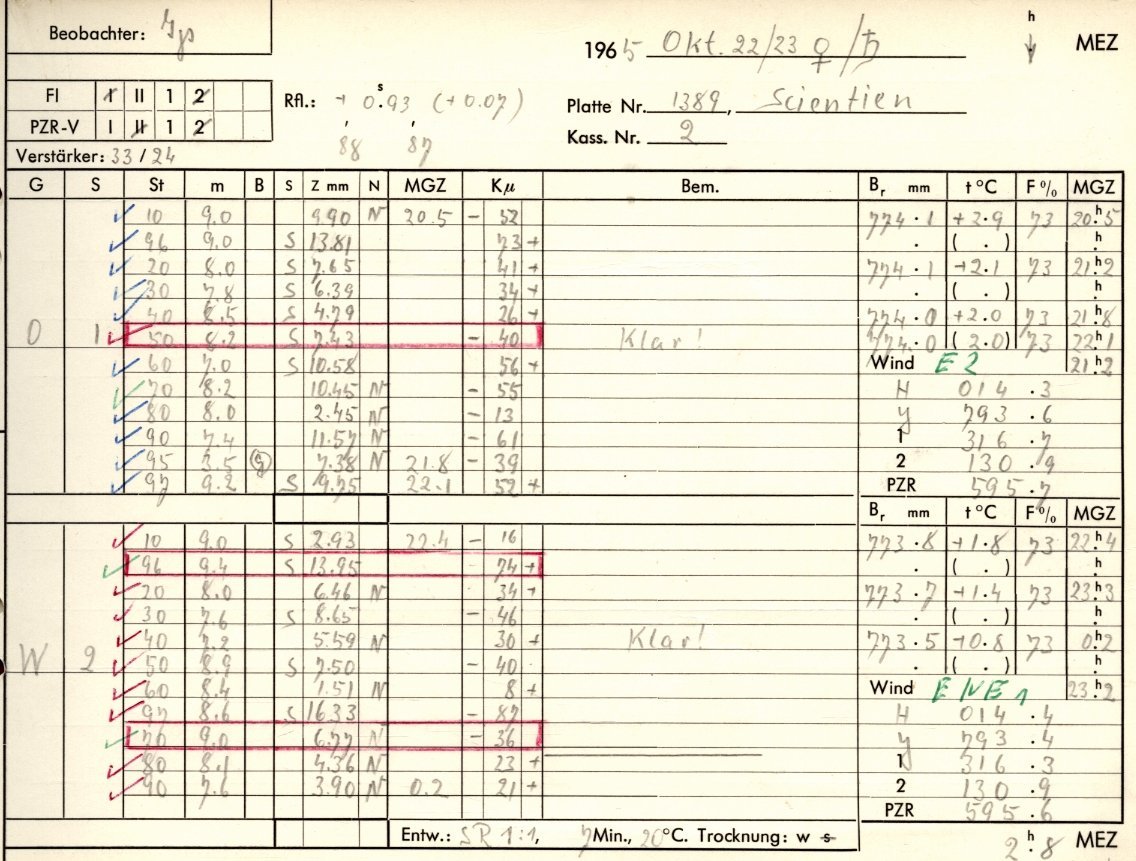 Beobachter: Gys
1965 Okt. 22/23 ♀/♄ h MEZ
FI I II 1 2 Rfl.: + 0.ˢ93 (+0.07)
Platte Nr. 1389, Scientien
PZR-V I II 1 2 88 87
Kass. Nr. 2
Verstärker: 33/24
G S St m B S Z mm N MGZ Kμ Bem. Bᵣ mm t °C F % MGZ
10 9.0 9.90 N 20.5 - 52 774.1 +2.9 73 20.ʰ5
96 9.0 S 13.81 73 + . ( . ) h
20 8.0 S 7.65 41 + 774.1 +2.1 73 21.ʰ2
30 7.8 S 6.39 34 + . ( . ) h
40 8.5 S 4.79 26 + 774.0 +2.0 73 21.ʰ8
O 1 50 8.2 S 7.43 - 40 Klar! 774.0 (2.0) 73 22.ʰ1
60 7.0 S 10.58 56 + Wind E 2 21.ʰ2
70 8.2 10.45 N - 55 H 014.3
80 8.0 2.45 N - 13 y 793.6
90 7.4 11.57 N - 61 1 316.7
95 3.5 (g) 7.38 N 21.8 - 39 2 130.9
97 9.2 S 9.75 22.1 52 + PZR 595.7
Bᵣ mm t °C F % MGZ
10 9.0 S 2.93 22.4 - 16 773.8 +1.8 73 22.ʰ4
96 9.4 S 13.95 74 + . ( . ) h
20 8.0 6.46 N 34 + 773.7 +1.4 73 23.ʰ3
30 7.6 S 8.65 - 46 . ( . ) h
40 7.2 5.59 N 30 + Klar! 773.5 +0.8 73 0.ʰ2
W 2 50 8.9 S 7.50 - 40 . ( . ) h
60 8.4 1.51 N 8 + Wind ENE 1 23.ʰ2
97 8.6 S 16.33 - 87 H 014.4
70 9.0 6.77 N - 36 y 793.4
80 8.1 4.36 N 23 + 1 316.3
90 7.6 3.90 N 0.2 21 + 2 130.9
PZR 595.6
Entw.: SR 1:1, 7 Min., 20°C. Trocknung: w s 2.ʰ8 MEZ